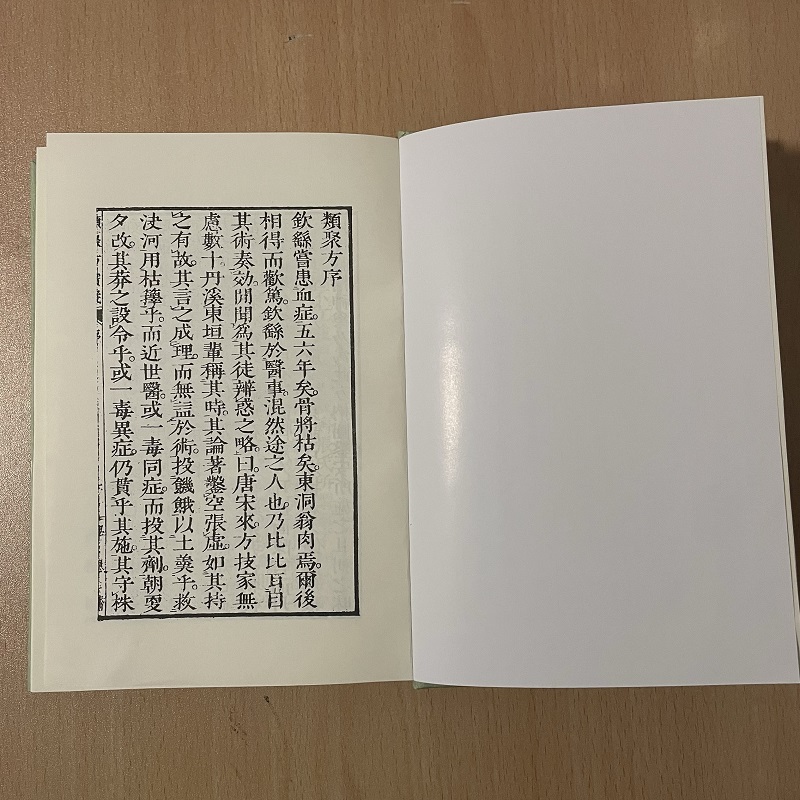 類聚方序
欽繇嘗患血症。五六年矣。骨將枯矣。東洞翁肉焉。爾後
相得而歡篤。欽繇於醫事。混然途之人也。乃比比耳目
其術奏効。閒聞爲其徒辨惑之略。曰。唐宋來方技家無
慮數十。丹溪東垣輩稱其時。其論著鑿空張虛。如其持
之有故。其言之成理。而無益於術。投饑餓以土羹乎。救
決河用枯攥乎。而近世醫。或一毒同症。而投其劑。朝耎
夕改。其莽之設令乎。或一毒異症。仍貰乎其施。其守株